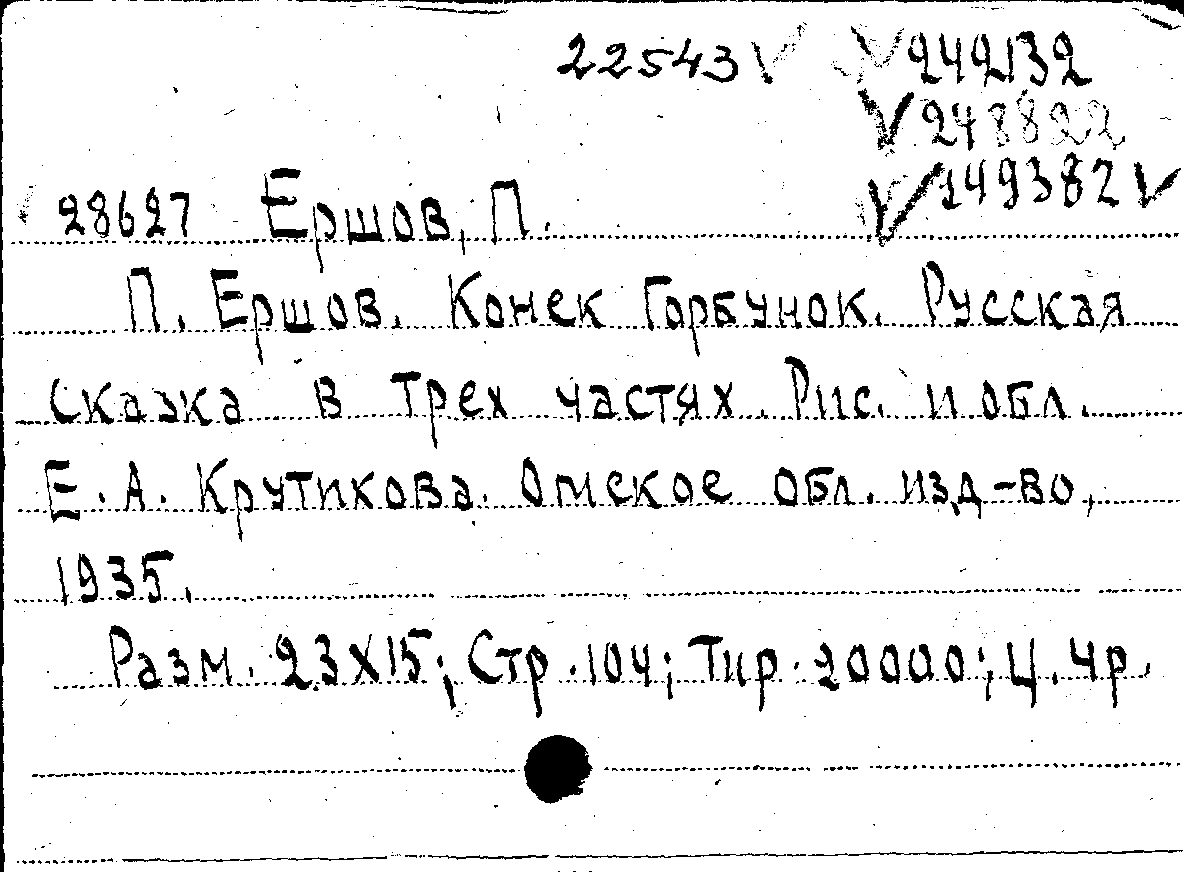 22543 242132
248822
28627 Ершов, П. 149382
П. Ершов. Конек Горбунок. Русская
сказка в трех частях. Рис. и обл.
Е. А. Крутикова. Омское обл. изд-во,
1935.
Разм. 23X15; Стр. 104; Тир. 20000; Ц. 4р.